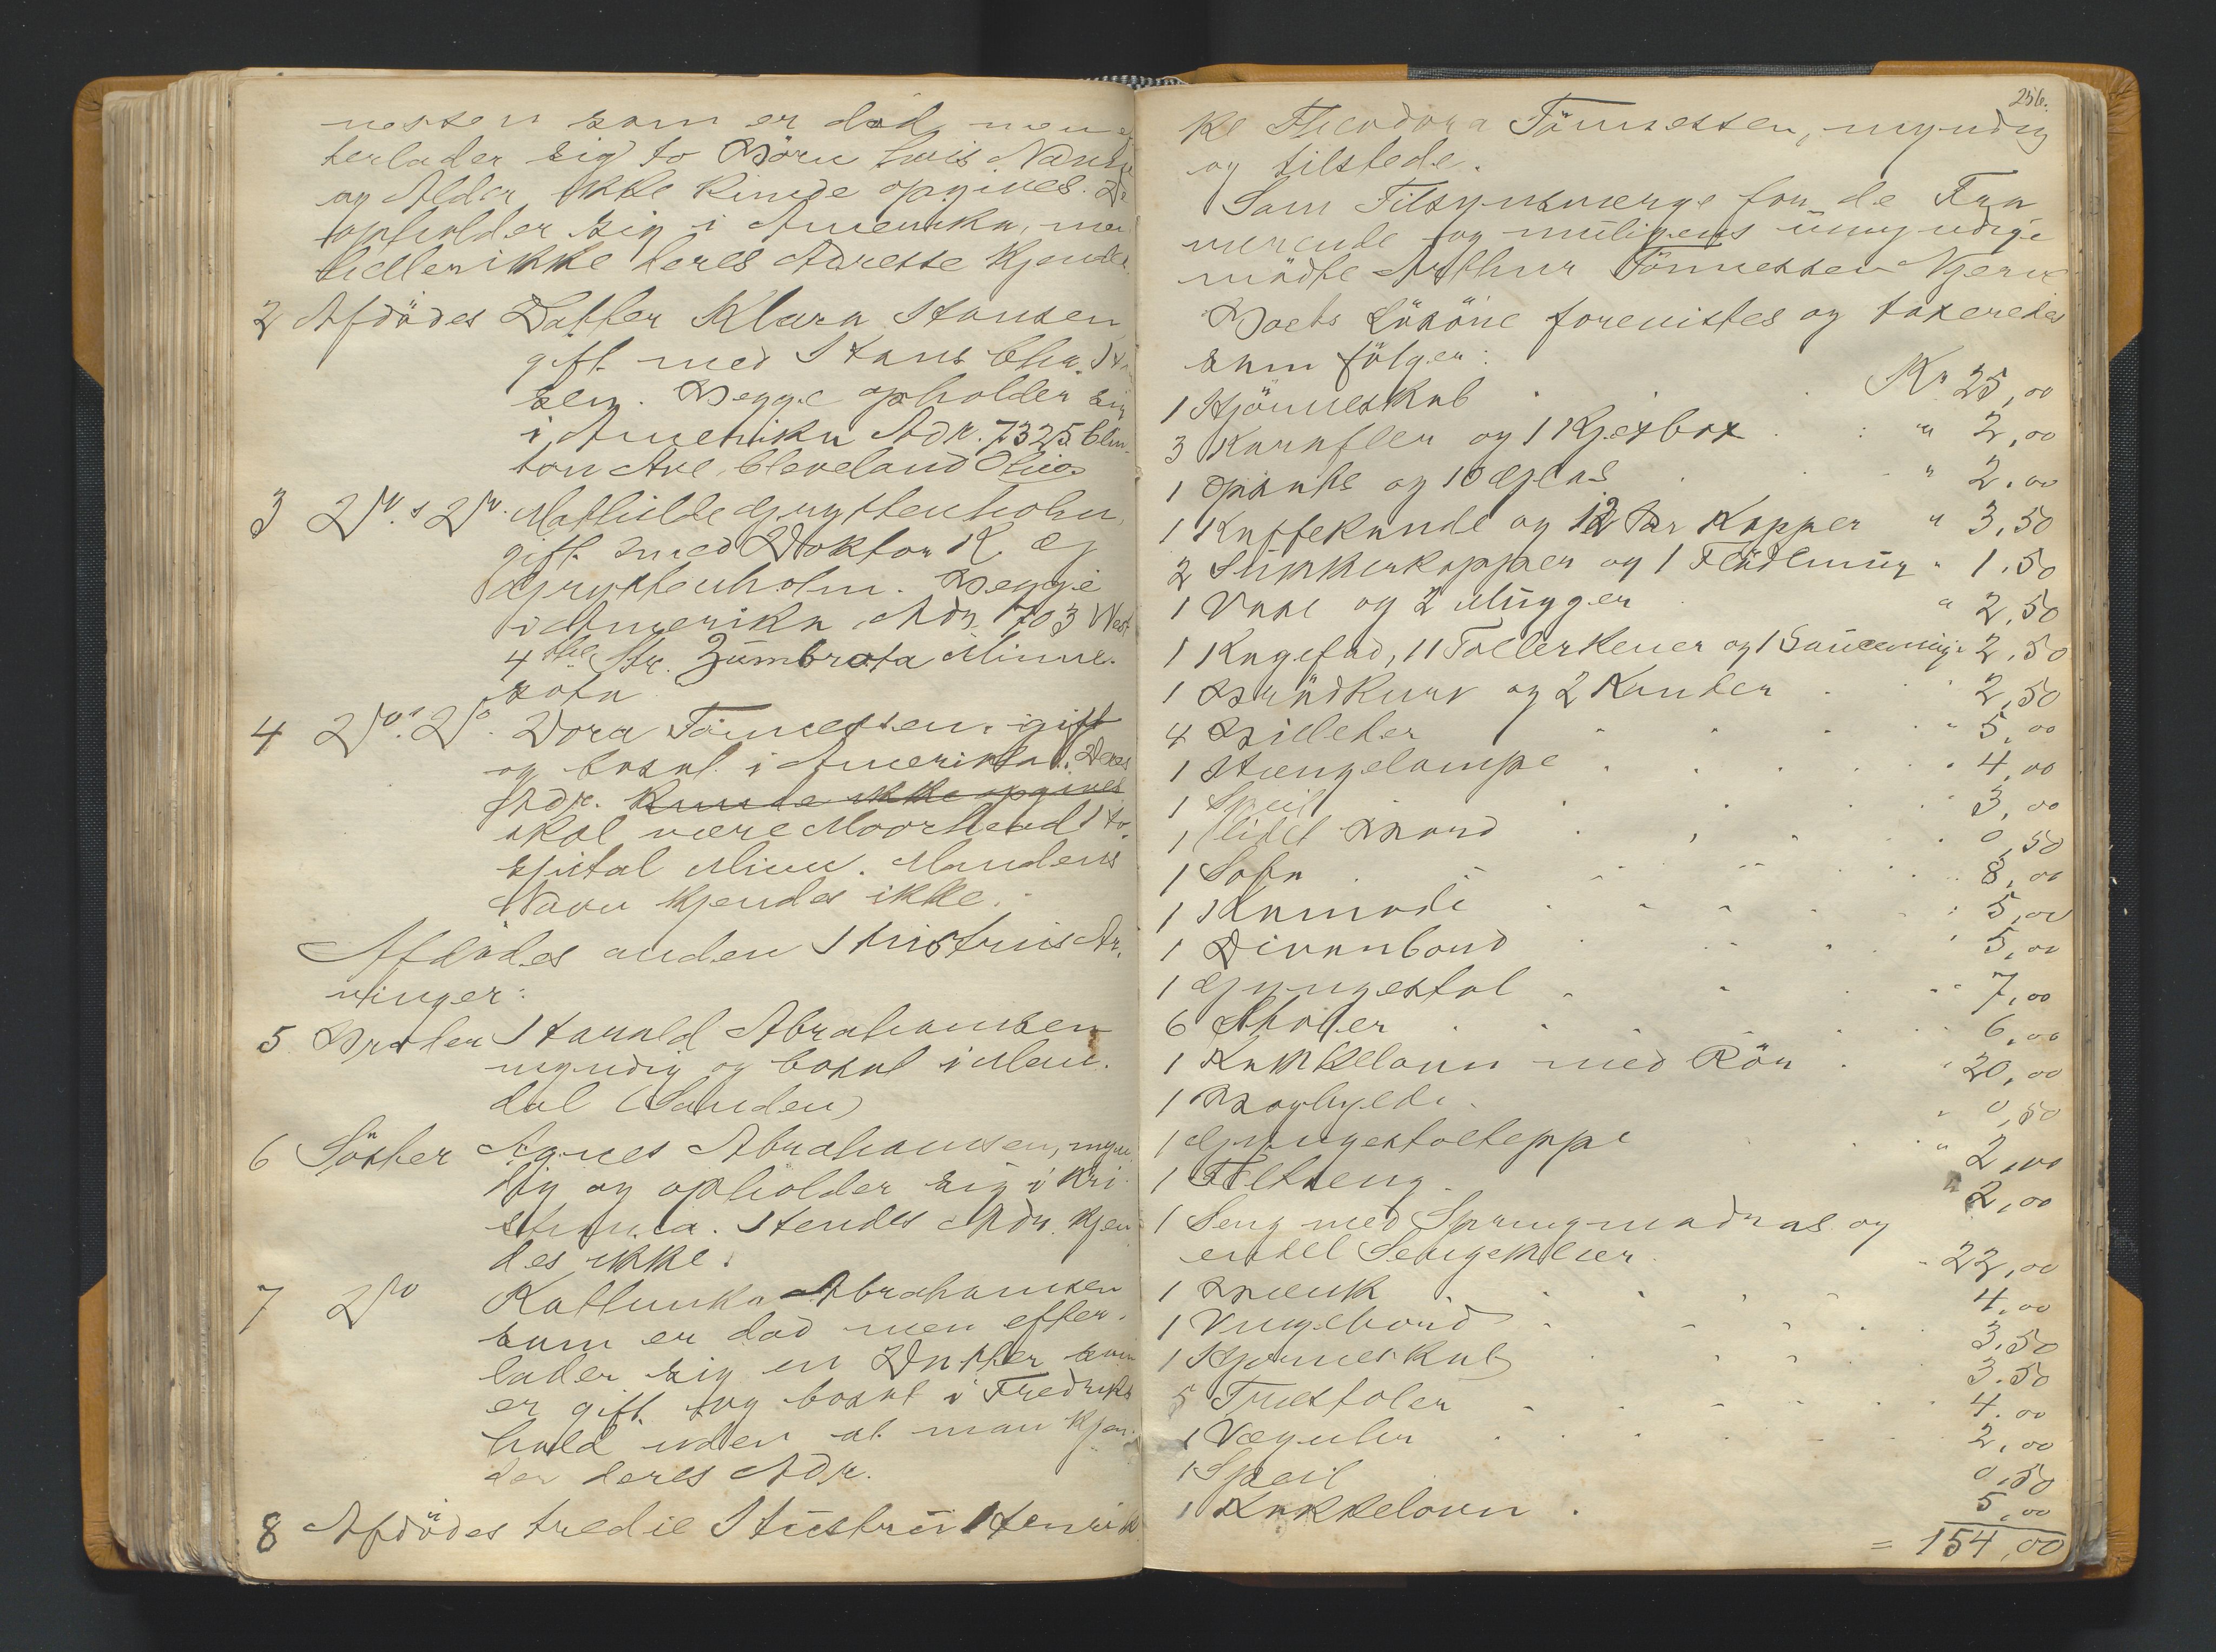 nessen som er död, men ef
terlader sig to Börn hvis Navne
og Alder ikke kunde opgives. De
opholder sig i Amerika, men
heller ikke deres Adresse kjendes.
2 Afdödes Datter Klara Hansen
gift med Hans Chr. Han
sen. Begge opholder sig
i Amerika Adr. 7325 Clin
ton Ave, Cleveland Ohio
3 Do. s Do. Mathilde Gryttenholm,
gift med Doktor K. Ø.
Gryttenholm. Begge
i Amerika, Adr. 1703 West
4the Str. Zumbrota Minne-
sota
4 Do.s Do. Dora Tönnessen. gift
og bosat i Amerika. Deres
Adr. kunde ikke opgives
skal være Moorhead Ho-
spital Minn. Mandens
Navn kjendes ikke.
Afdödes anden Hustrus Ar-
vinger:
5 Broder Harald Abrahamsen
myndig og bosat i Man-
dal (Sanden)
6 Söster Agnes Abrahamsen, myn-
dig og opholder sig i Kri-
stiania. Hendes Adr. kjen
des ikke.
7 Do Kathinka Abrahamsen
som er död men efter-
lader sig en Datter som
er gift og bosat i Fredriks
hald uden at man kjen-
der deres Adr.
8 Afdödes tredie Hustru Henrik
256.
ke Theodora Tönnessen, myndig
og tilstede.
Som Tilsynsværge for de Fra
værende og muligens umyndige
mödte Arthur Tönnessen Vjerve
Boets Lösöre forevistes og taxeredes
som fölger:
1 Hjörneskab Kr 25,00
3 Karafler og 1 Kjexbox " 2,00
1 Opsats og 10 Glas " 2,00
1 Kaffekande og 12 Par Kopper " 3,50
2 Sukkerkopper og 1 Flödemug " 1,50
1 Vase og 2 Mugger " 2,50
1 Kagefad, 11 Tallerkener og 1 Saucemug " 2,50
1 Brödkurv og 2 Kander 2,50
4 Billeder " 5,00
1 Hængelampe " 4,00
1 Speil " 3,00
1 lidet Bord 0,50
1 Sofa 8,00
1 Kamode 5,00
1 Divanbord 5,00
1 Gyngestol 7,00
6 Stoler 6,00
1 Kakkelovn med Rör 20,00
1 Boghylde " 0,50
1 Gyngestolteppe " 2,00
1 Feltseng " 2,00
1 Seng med Springmadras og
endel Sengeklær 22,00
1 Bænk 4,00
1 Vugebord 3,50
1 Hjörneskab 3.50
5 Træstoler 4.00
1 Væguhr 2,00
1 Speil 0,50
1 Kakkelovn 5,00
= 154,00